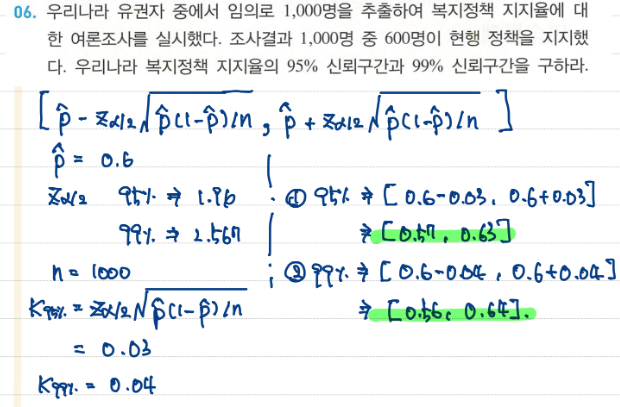 06. 우리나라 유권자 중에서 임의로 1,000명을 추출하여 복지정책 지지율에 대
한 여론조사를 실시했다. 조사결과 1,000명 중 600명이 현행 정책을 지지했
다. 우리나라 복지정책 지지율의 95% 신뢰구간과 99% 신뢰구간을 구하라.
[ p̂ - Zα/2 √p̂(1-p̂)/n , p̂ + Zα/2 √p̂(1-p̂)/n ]
p̂ = 0.6
Zα/2 95% ⇒ 1.96
99% ⇒ 2.567
n = 1000
K95%. = Zα/2 √p̂(1-p̂)/n
= 0.03
K99%. = 0.04
① 95% ⇒ [ 0.6-0.03, 0.6+0.03]
⇒ [0.57, 0.63]
② 99% ⇒ [ 0.6-0.04, 0.6+0.04]
⇒ [0.56, 0.64].